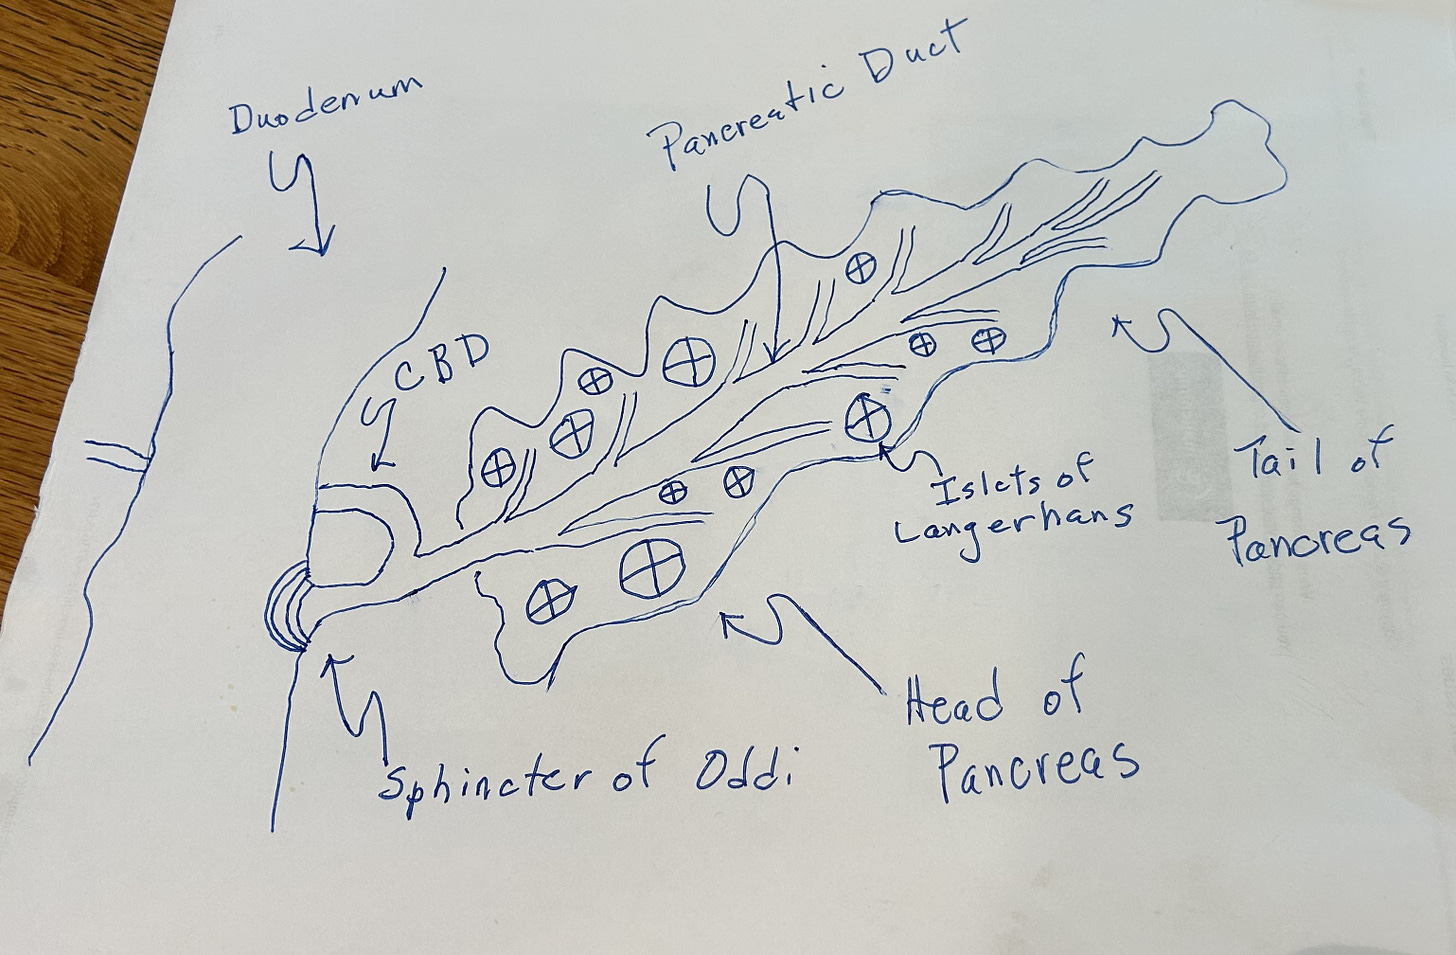 Duodenum
Pancreatic Duct
CBD
Islets of
Langerhans
Tail of
Pancreas
Head of
Pancreas
Sphincter of Oddi